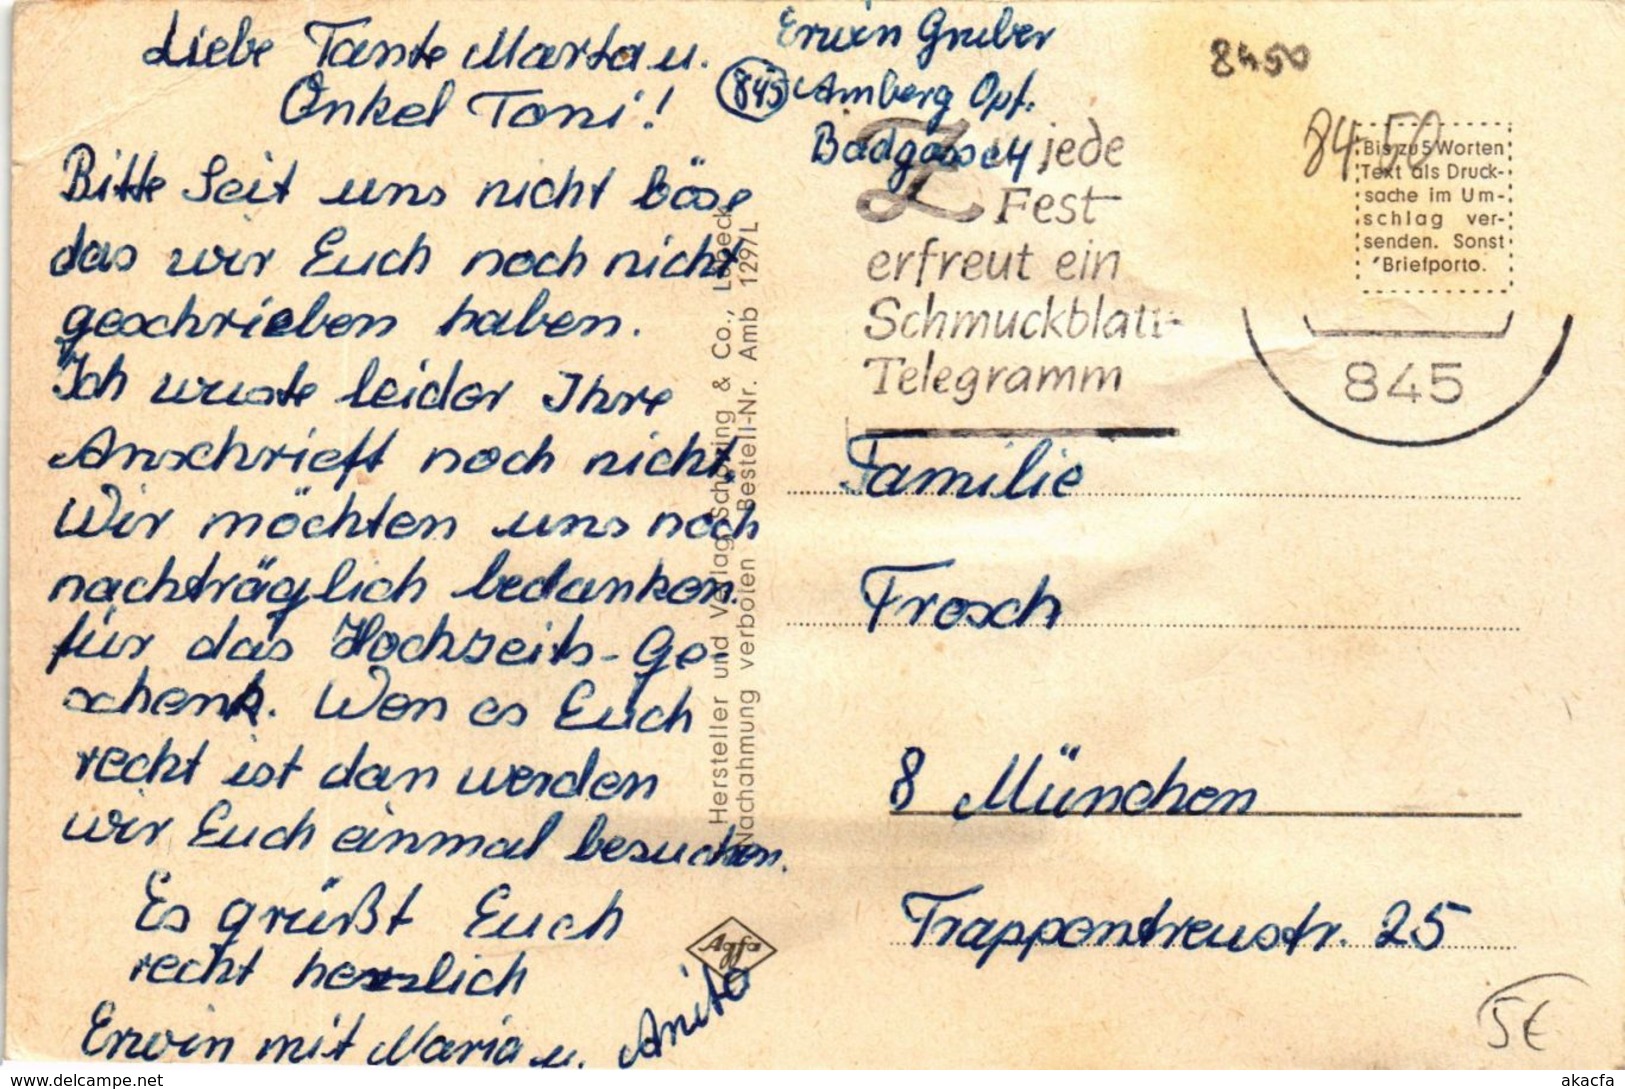 Liebe Tante Marta u.
Onkel Toni!
Bitte Seit uns nicht böse
das wir Euch noch nicht
geschrieben haben.
Ich wuste leider Ihre
Anschrieft noch nicht.
Wir möchten uns noch
nachträglich bedanken.
für das Hochzeits-Ge-
schenk. Wen es Euch
recht ist dan werden
wir Euch einmal besuchen.
Es grüßt Euch
recht herzlich
Erwin mit Maria u. Anita
Hersteller und Verlag Schöning & Co., Lübeck
Nachahmung verboten Bestell-Nr. Amb 1297L
Agfa
Erwin Gruber
845 Amberg Opf.
Badgasse 4
8450
8450
Zu jede
Fest
erfreut ein
Schmuckblatt-
Telegramm
Bis zu 5 Worten
Text als Druck-
sache im Um-
schlag ver-
senden. Sonst
Briefporto.
845
Familie
Frosch
8 München
Trappentreustr. 25
5€
www.delcampe.net
akacfa